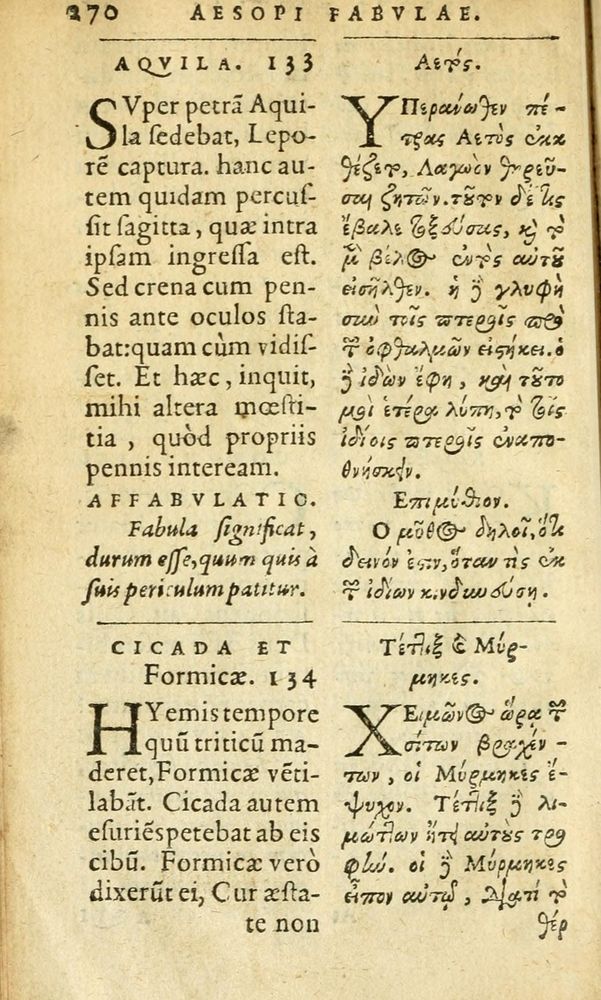 270 AESOPI FABVLAE.
AQVILA. 133
SVper petrã Aqui-
la sedebat, Lepo-
rẽ captura. hanc au-
tem quidam percus-
sit sagitta, quæ intra
ipsam ingressa est.
Sed crena cum pen-
nis ante oculos sta-
bat: quam cùm vidis-
set. Et hæc, inquit,
mihi altera mœsti-
tia, quòd propriis
pennis inteream.
AFFABVLATIO.
Fabula significat,
durum esse, quum quis à
suis periculum patitur.
Αετός.
ΥΠεράνωθεν πέ-
τρας Αετὸς ἐκα
θέζετο, Λαγωὸν θηρεῦ-
σαι ζητῶν. τοῦτον δέ τις
ἔβαλε τοξεύσας, καὶ τὸ
μὲν βέλος ἐντὸς αὐτοῦ
εἰσῆλθεν. ἡ δὲ γλυφὴ
σὺν τοῖς πτεροῖς πρὸ
τῶν ὀφθαλμῶν εἱστήκει. ὁ
δὲ ἰδὼν ἔφη, καὶ τοῦτο
μοὶ ἑτέρα λύπη, τὸ τοῖς
ἰδίοις πτεροῖς ἐναπο-
θνήσκειν.
Επιμύθιον.
Ο μῦθος δηλοῖ, ὅτι
δεινόν ἐστιν, ὅταν τὶς ἐκ
τῶν ἰδίων κινδυνεύση.
CICADA ET
Formicæ. 134
HYemis tempore
quũ triticũ ma-
deret, Formicæ vẽti-
labãt. Cicada autem
esuriẽs petebat ab eis
cibũ. Formicæ verò
dixerũt ei, Cur æsta-
te non
Τέττιξ καὶ Μύρ-
μηκες.
ΧΕιμῶνος ὥρα τῶν
σίτων βραχέν-
των, οἱ Μύρμηκες ἔ-
ψυχον. Τέττιξ δὲ λι-
μώττων ᾔτει αὐτοὺς τρο
φήν. οἱ δὲ Μύρμηκες
εἶπον αὐτῷ, Διατί τὸ
θέρ